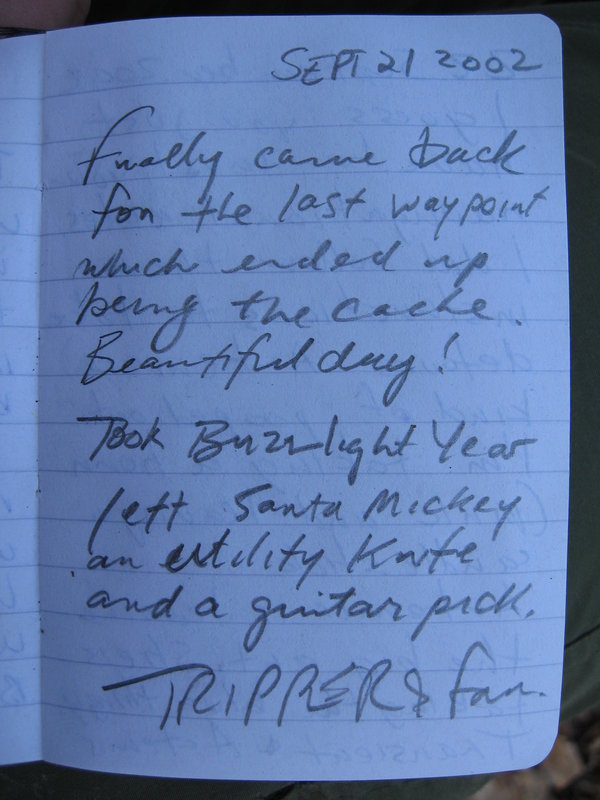 SEPT 21 2002
finally came back
for the last waypoint
which ended up
being the cache.
Beautiful day!
Took Buzz light Year
left Santa Mickey
an utility Knife
and a guitar pick.
TRIPPER & fam.